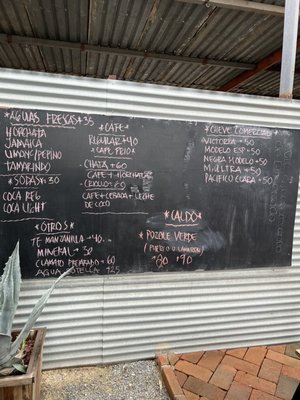 *AGUAS FRESCAS*35
HORCHATA
JAMAICA
LIMON/PEPINO
TAMARINDO
*SODAS* 30
COCA REG
COCA LIGHT
*OTROS*
TE MANZANILLA +40
MINERAL + 30
CLAMATO PREPARADO + 60
AGUA BOTELLA $25
*CAFE*
REGULAR +40
*CAFE FRIO*
- CHATA +60
CAFE + HORCHATA
- CRIOLLO +80
CAFE + CEBADA + LECHE
DE COCO
*CALDO*
*POZOLE VERDE
(PUERCO O CAMARON)
+80 +90
*CHEVE COMERCIAL*
VICTORIA +50
MODELO ESP +50
NEGRA MODELO +50
M. ULTRA +50
PACIFICO CLARA +50